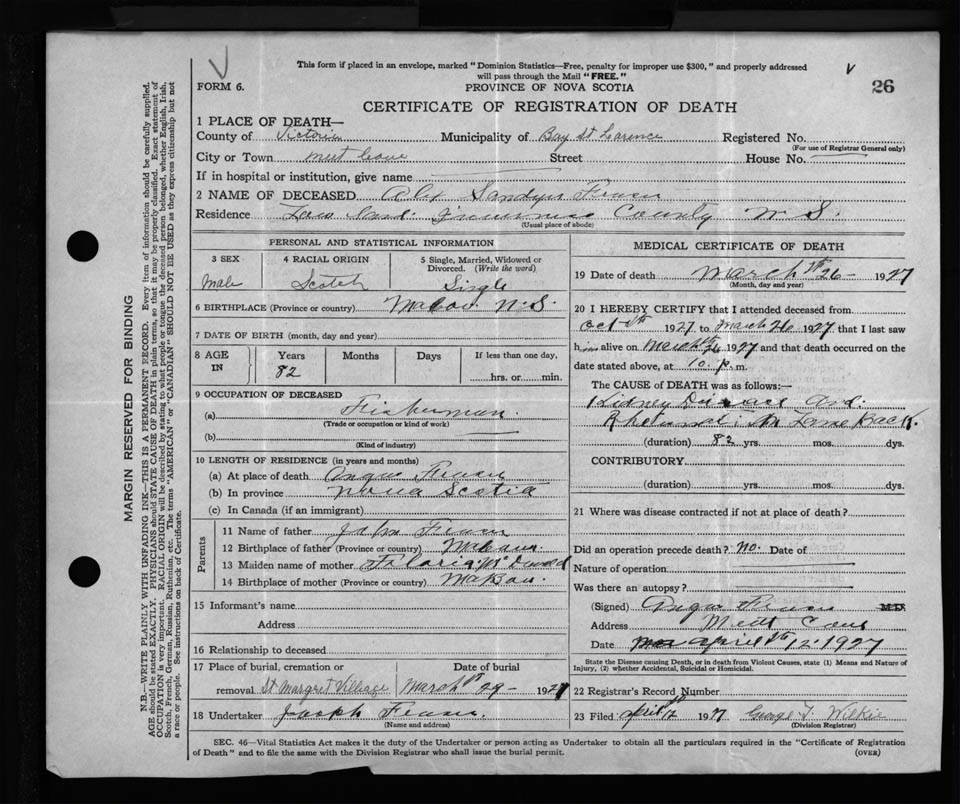 This form if placed in an envelope, marked "Dominion Statistics—Free, penalty for improper use $300," and properly addressed
will pass through the Mail "FREE."
FORM 6.
PROVINCE OF NOVA SCOTIA
26
CERTIFICATE OF REGISTRATION OF DEATH
1 PLACE OF DEATH—
County of Victoria Municipality of Bay St Larence Registered No.
(For use of Registrar General only)
City or Town meet Cove Street House No.
If in hospital or institution, give name
2 NAME OF DECEASED Alex Sandyu
Residence County N. S.
(Usual place of abode)
PERSONAL AND STATISTICAL INFORMATION
3 SEX
Male
4 RACIAL ORIGIN
Scotch
5 Single, Married, Widowed or Divorced. (Write the word)
Single
6 BIRTHPLACE (Province or country) Mabou N.S.
7 DATE OF BIRTH (month, day and year)
8 AGE IN
Years
82
Months
Days
If less than one day,
hrs. or min.
9 OCCUPATION OF DECEASED
(a) Fisherman.
(Trade or occupation or kind of work)
(b)
(Kind of industry)
10 LENGTH OF RESIDENCE (in years and months)
(a) At place of death Angus
(b) In province Nova Scotia
(c) In Canada (if an immigrant)
Parents
11 Name of father John
12 Birthplace of father (Province or country) Mabou.
13 Maiden name of mother McDonald
14 Birthplace of mother (Province or country) Mabou.
15 Informant's name
Address
16 Relationship to deceased
17 Place of burial, cremation or
removal St Margret Village
Date of burial
March 29- 1927
18 Undertaker Joseph
(Name and address)
MEDICAL CERTIFICATE OF DEATH
19 Date of death March 26- 1927
(Month, day and year)
20 I HEREBY CERTIFY that I attended deceased from
Oct 1927 to March 26 1927 that I last saw
him alive on March 26 1927 and that death occurred on the
date stated above, at 10 p. m.
The CAUSE of DEATH was as follows:—
Kidney Diseace And.
Lame Back.
(duration) 82 yrs. mos. dys.
CONTRIBUTORY
(duration) yrs. mos. dys.
21 Where was disease contracted if not at place of death?
Did an operation precede death? No. Date of
Nature of operation
Was there an autopsy?
(Signed) Angus M.D.
Address Cove
Date April 12 1927
State the Disease causing Death, or in death from Violent Causes, state (1) Means and Nature of
Injury, (2) whether Accidental, Suicidal or Homicidal.
22 Registrar's Record Number
23 Filed April 12 1927 George T. Wilkie
(Division Registrar)
SEC. 46—Vital Statistics Act makes it the duty of the Undertaker or person acting as Undertaker to obtain all the particulars required in the "Certificate of Registration
of Death" and to file the same with the Division Registrar who shall issue the burial permit.
(OVER)
MARGIN RESERVED FOR BINDING
N.B.—WRITE PLAINLY WITH UNFADING INK—THIS IS A PERMANENT RECORD. Every item of information should be carefully supplied.
AGE should be stated EXACTLY. PHYSICIANS should STATE CAUSE OF DEATH in plain terms, so that it may be properly classified. Exact statement of
OCCUPATION is very important. RACIAL ORIGIN will be described by stating to what people or tongue the deceased person belonged, whether English, Irish,
Scotch, French, German, Russian, Ruthenian, etc. The terms "AMERICAN" or "CANADIAN" SHOULD NOT BE USED as they express citizenship but not
a race or people. See instructions on back of Certificate.